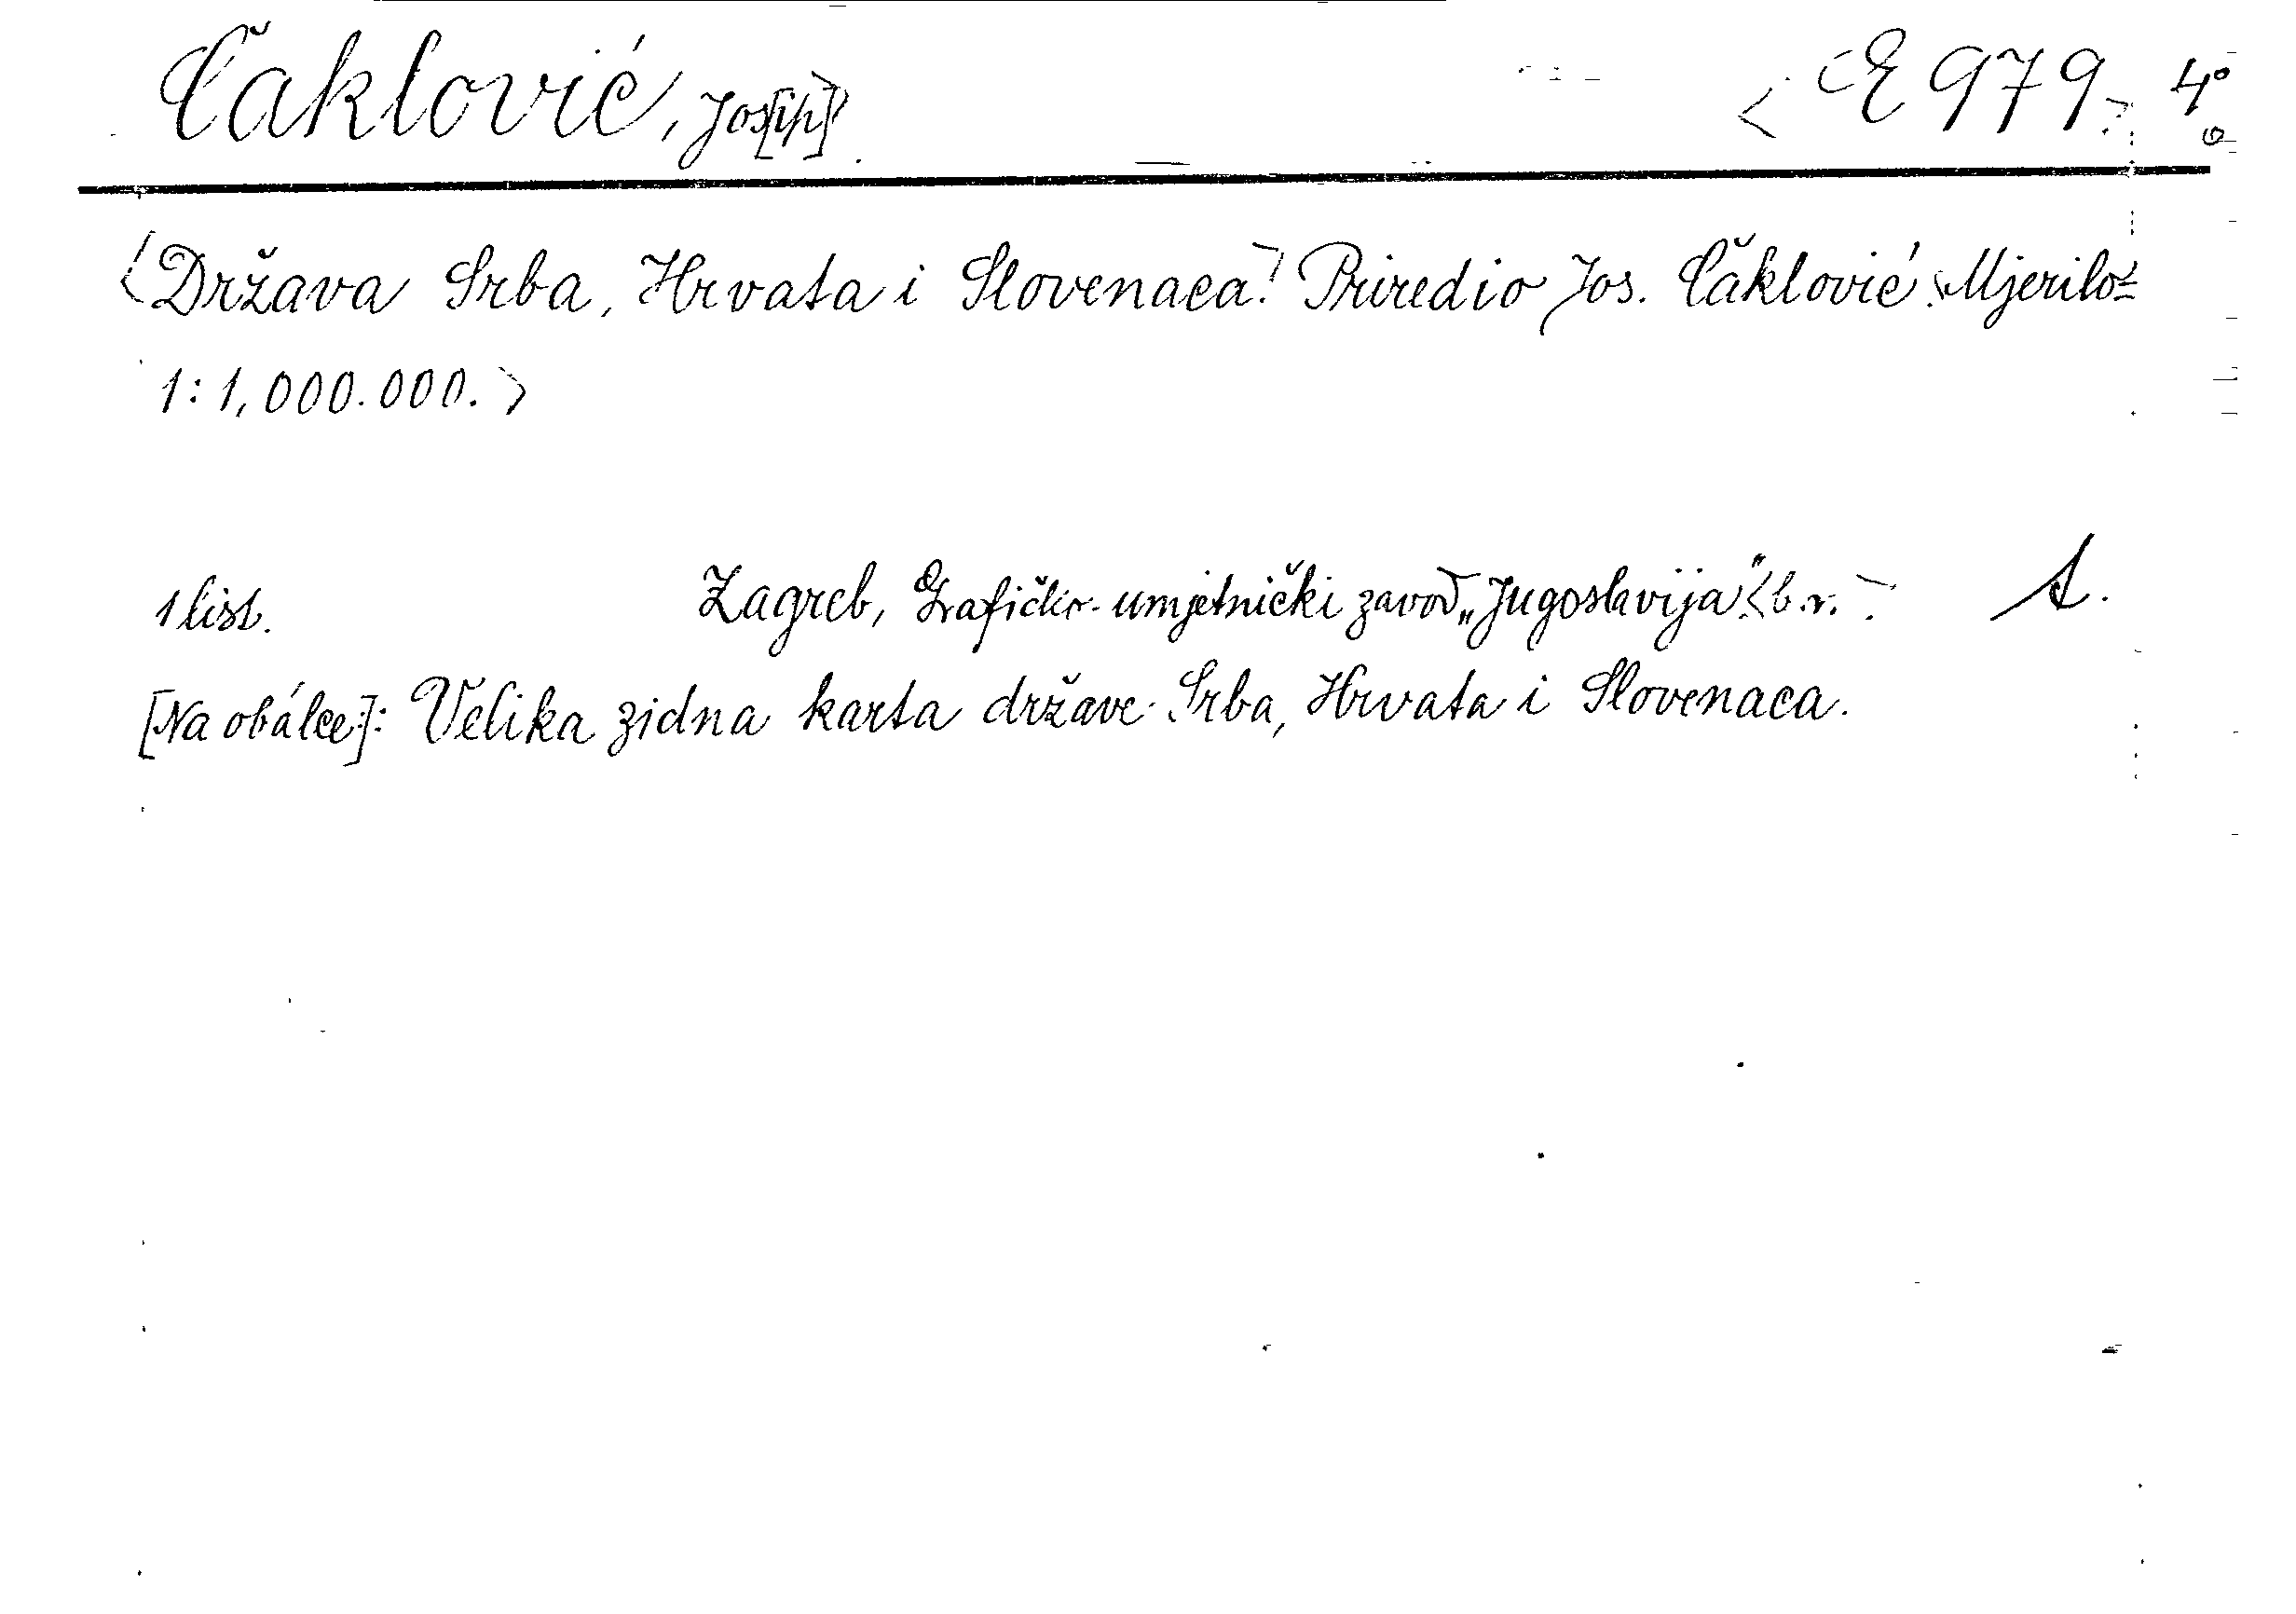 Čaklović, Jos[ip] <E 979> 4°
<Država Srba, Hrvata i Slovenaca.> Priredio Jos. Čaklović. <Mjerilo=
1:1,000.000.>
1 list. Zagreb, Grafičko-umjetnički zavod „Jugoslavija“ <b.r.> A.
[Na obálce]: Velika zidna karta države Srba, Hrvata i Slovenaca.